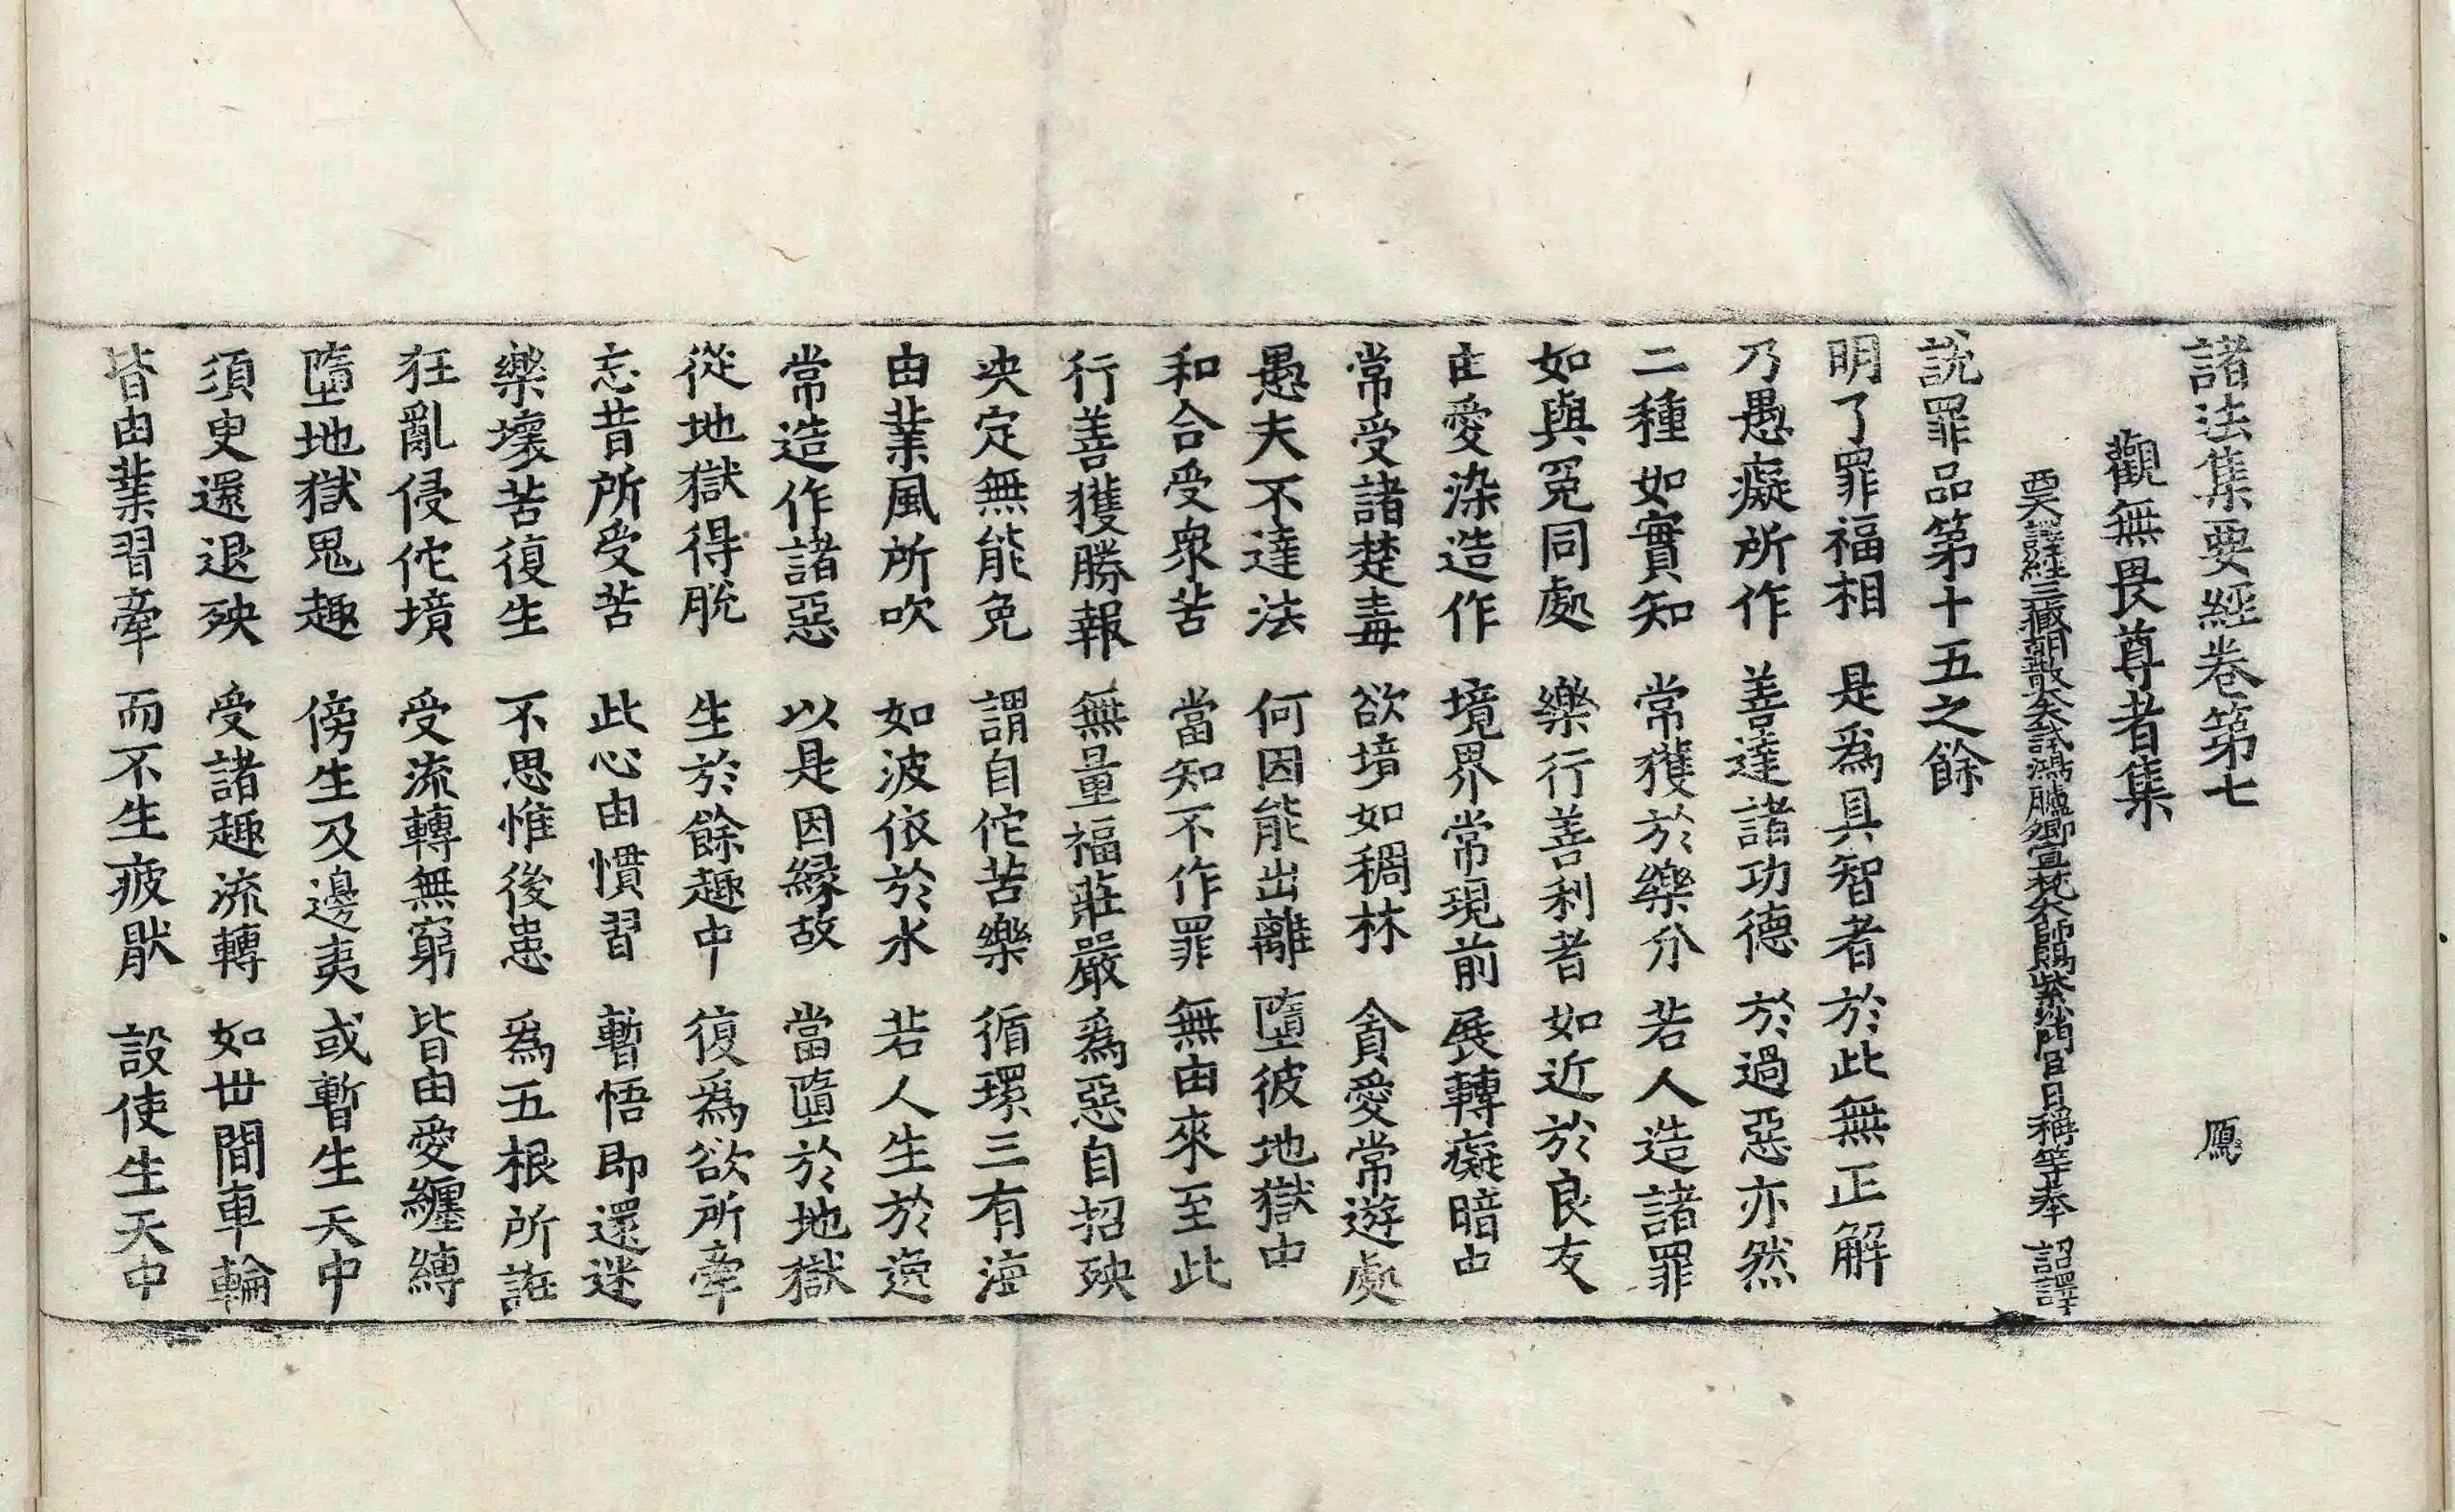 諸法集要經卷第七 鳫
觀無畏尊者集
西天譯經三藏朝散大夫試鴻臚卿宣梵大師賜紫沙門臣日稱等奉 詔譯
說罪品第十五之餘
明了罪福相 是爲具智者 於此無正解
乃愚癡所作 善達諸功德 於過惡亦然
二種如實知 常獲於樂分 若人造諸罪
如與冤同處 樂行善利者 如近於良友
由愛染造作 境界常現前 展轉癡暗中
常受諸楚毒 欲境如稠林 貪愛常遊處
愚夫不達法 何因能出離 墮彼地獄中
和合受衆苦 當知不作罪 無由來至此
行善獲勝報 無量福莊嚴 爲惡自招殃
決定無能免 謂自佗苦樂 循環三有海
由業風所吹 如波依於水 若人生於逸
常造作諸惡 以是因緣故 當墮於地獄
從地獄得脫 生於餘趣中 復爲欲所牽
忘昔所受苦 此心由慣習 暫悟即還迷
樂壞苦復生 不思惟後患 爲五根所誑
狂亂侵佗境 受流轉無窮 皆由愛纏縛
墮地獄鬼趣 傍生及邊夷 或暫生天中
須臾還退殃 受諸趣流轉 如世間車輪
皆由業習牽 而不生疲猒 設使生天中